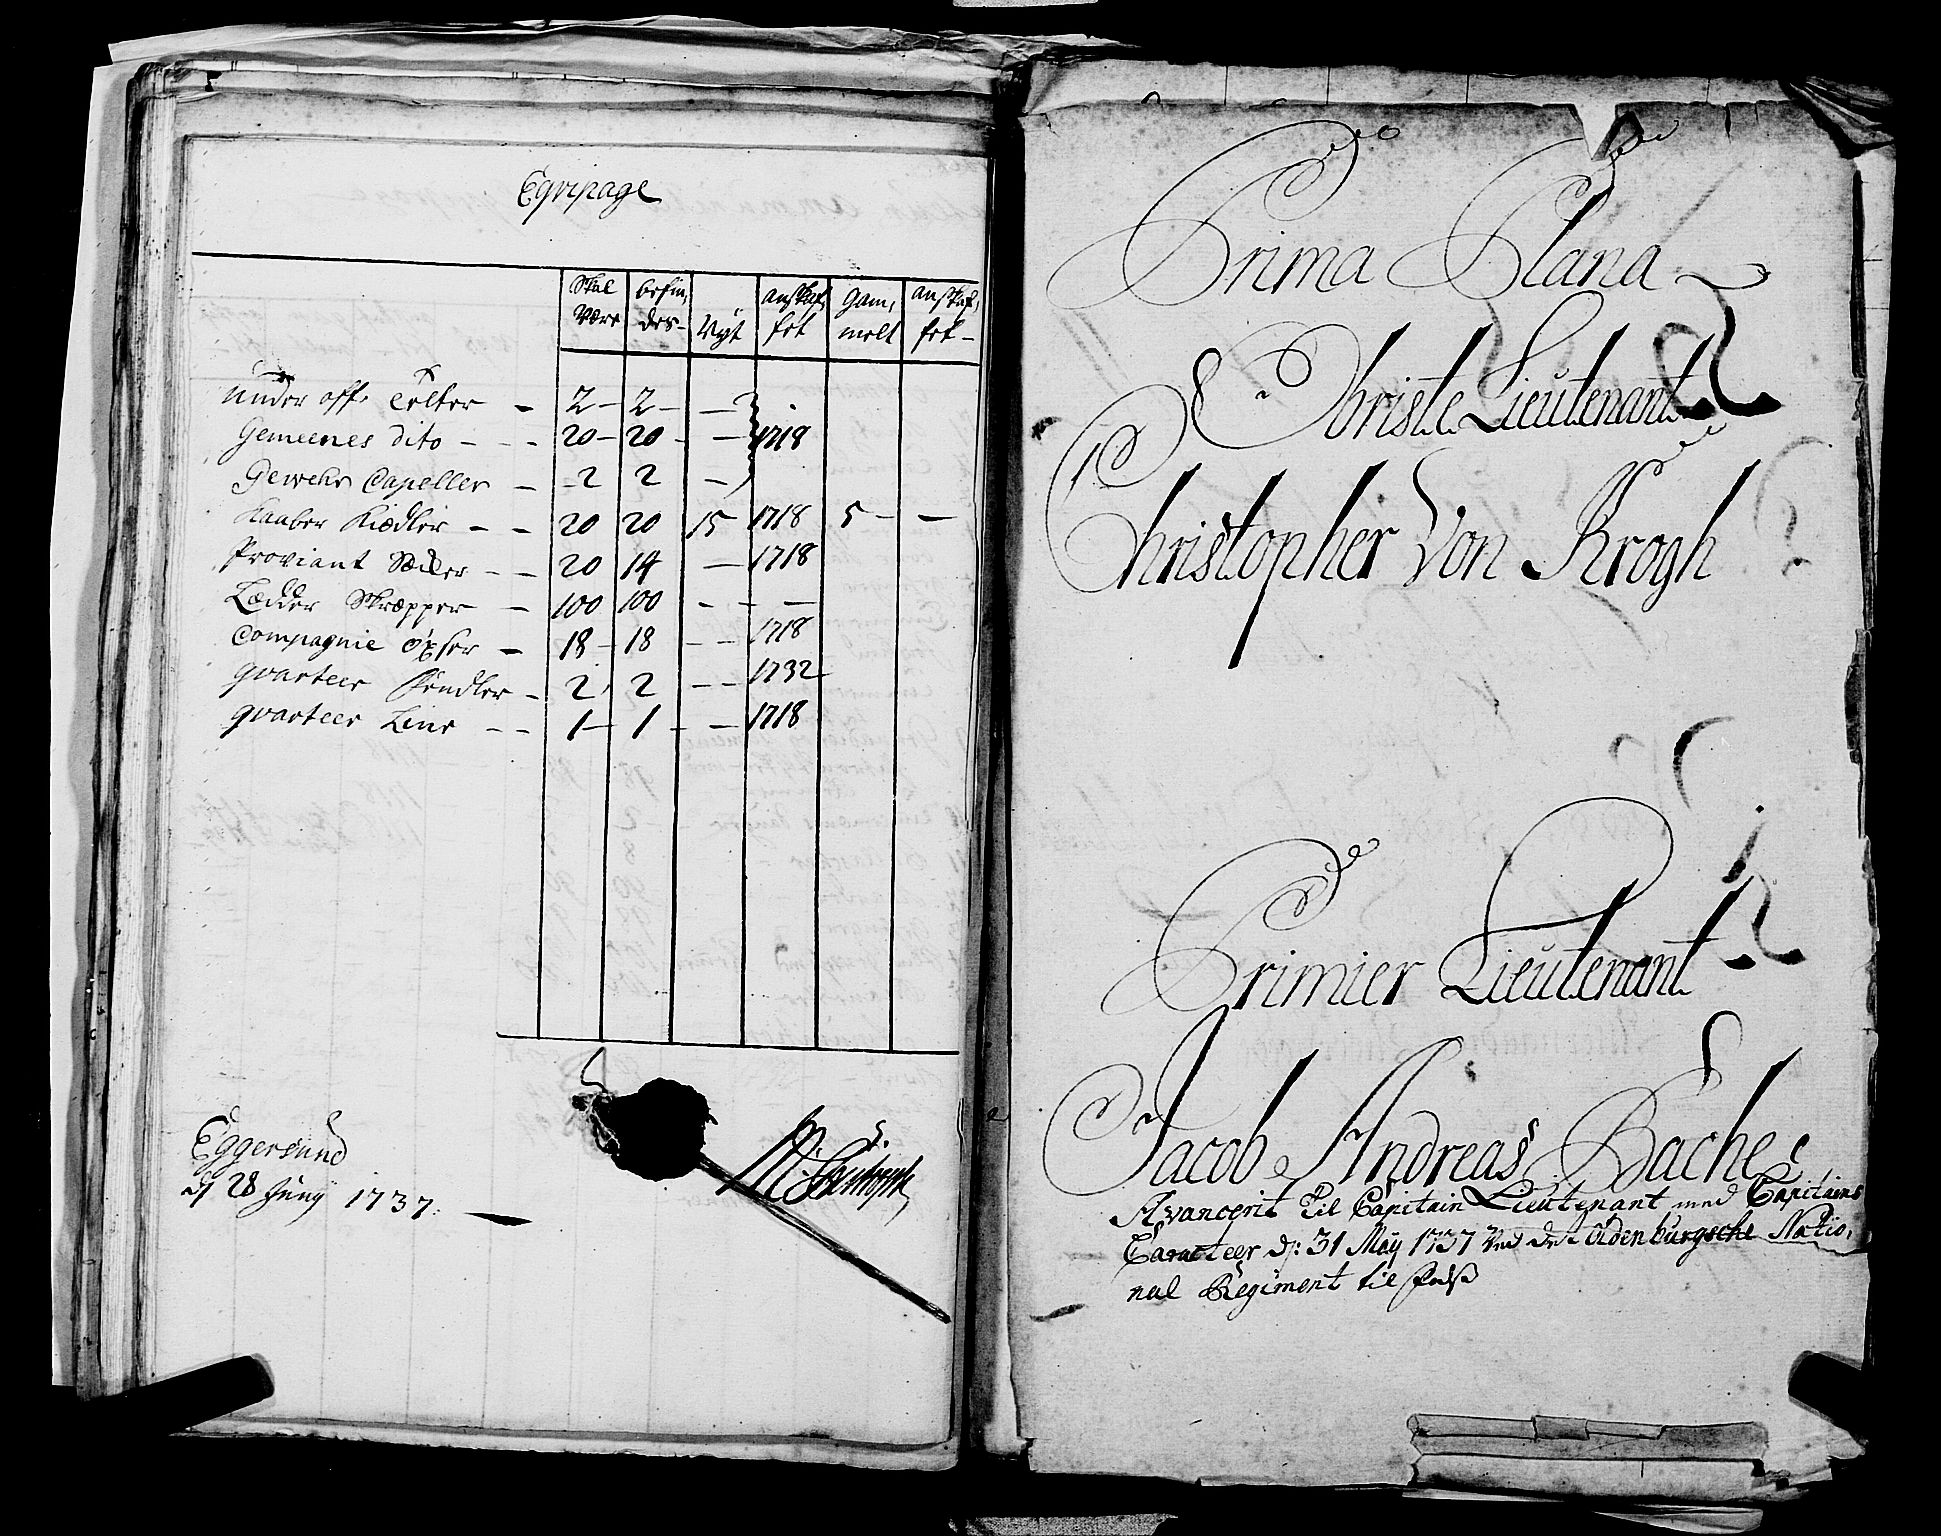 Eqvipage
Skal være | befin, des- | Nyt | anskaf, fet | gam, melt | anskaf, fet -
Under off: Telter - 2 - 2 - -
Gemeenes dito - - - 20 - 20 - - 1718
Gewehr Capeller - 2 2 -
Kaaber Kiedler - - 20 20 15 1718 5 - -
Proviant Sæcker - - 20 14 - 1718
Lædder Skræpper - 100 100 - - -
Compagnie Øxser - 18 - 18 - - 1718
qvarteer Pindler - 2 2 - - 1732
qvarteer Line - - 1 - 1 - - 1718
Eggersund
d 28 Juny 1737.
Prima Plana
Obriste Lieutenant
Christopher Von Krogh
Primier Lieutenant
Jacob Andreas Bache
Avancerit Til Capitain Lieutenant med Capitains
Caracteer d: 31 May 1737 Ved det Oldenburgsche Natio,
nal Regiment til Fods